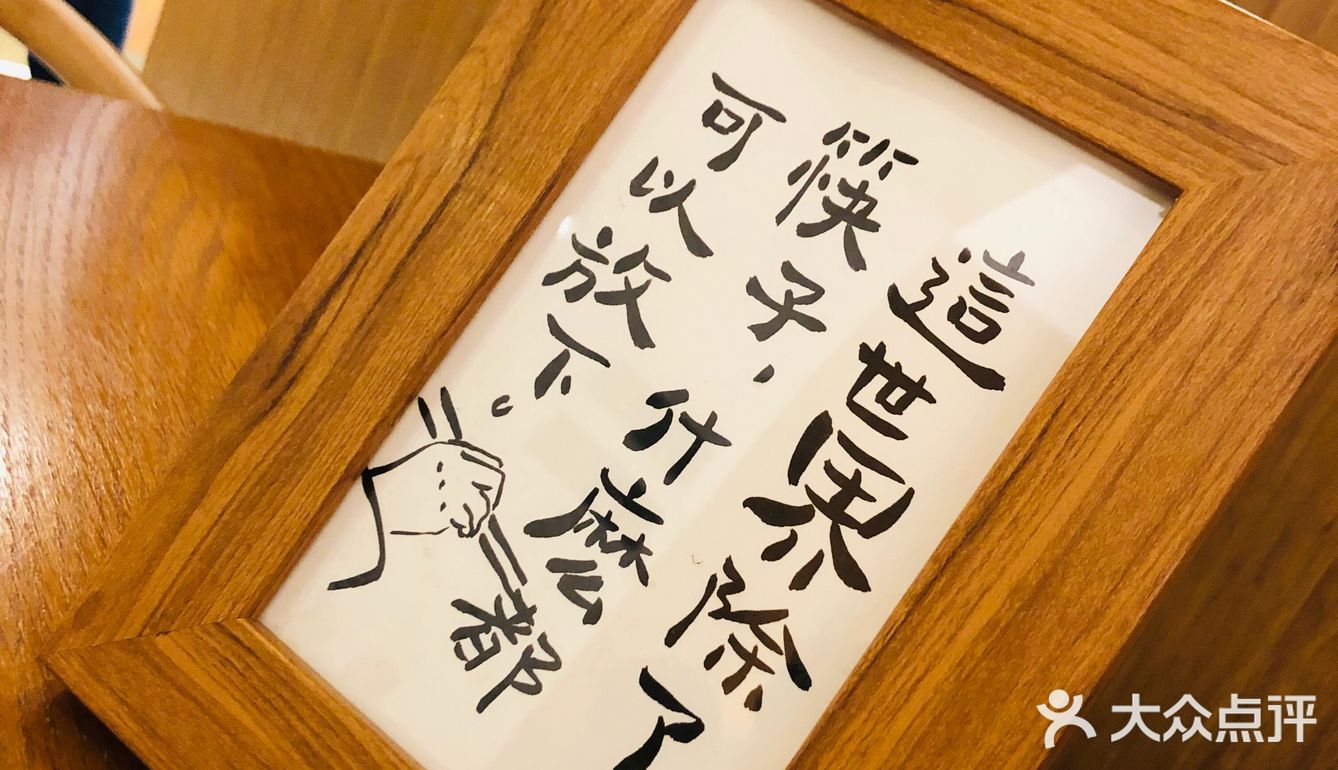 這世界除了
筷子，什麼都
可以放下。
大众点评